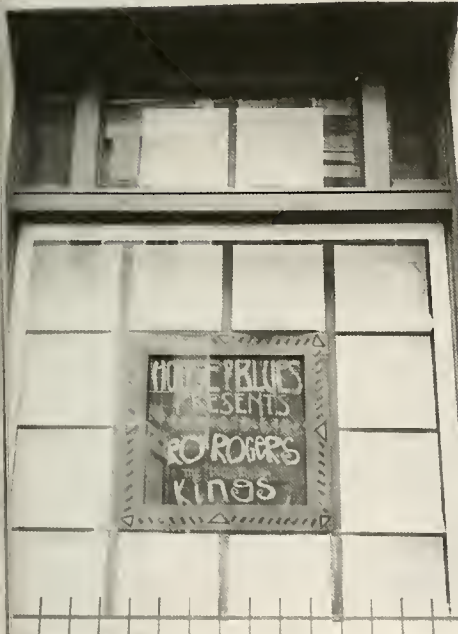 HOUSE OF BLUES
PRESENTS
ROY ROGERS
Kings